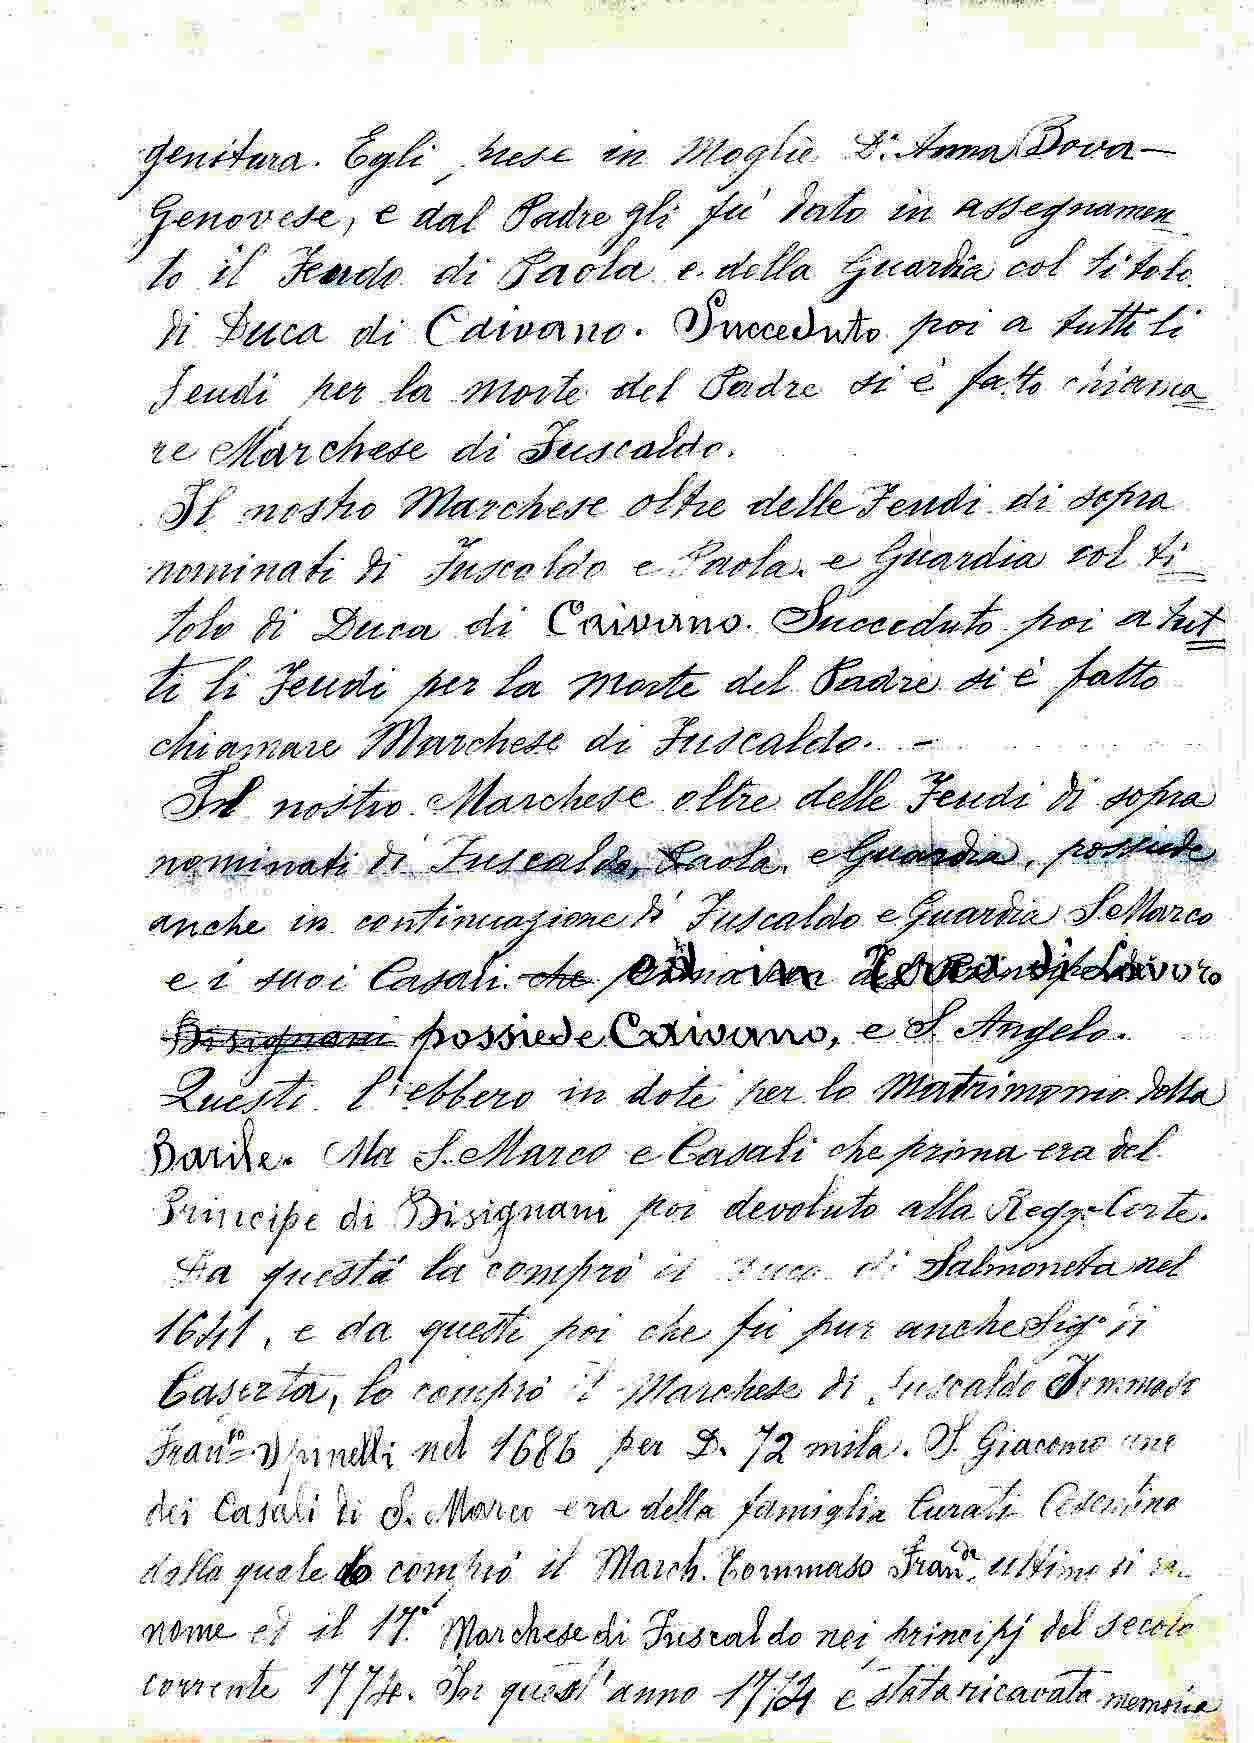 genitura. Egli prese in Moglie D.ª Anna Bova—
Genovese, e dal Padre gli fù dato in assegnamen_
to il Feudo di Paola e della Guardia col titolo
di Duca di Caivano. Succeduto poi a tutti li
Feudi per la morte del Padre si è fatto chiama=
re Marchese di Fuscaldo.
Il nostro Marchese oltre delle Feudi di sopra
nominati di Fuscaldo e Paola, e Guardia col ti=
tolo di Duca di Caivano. Succeduto poi a tut=
ti li Feudi per la morte del Padre si è fatto
chiamare Marchese di Fuscaldo. –
Il nostro Marchese oltre delle Feudi di sopra
nominati di Fuscaldo, Paola, e Guardia, possiede
anche in continuazione di Fuscaldo e Guardia S. Marco
e i suoi Casali che ed in Terra di Lavoro
Bisignani possiede Caivano, e S. Angelo.
Questi l'ebbero in dote per lo Matrimonio della
Barile. Ma S. Marco e Casali che prima era del
Principe di Bisignani poi devoluto alla Reg.ª Corte.
Da questa la comprò il Duca di Salmoneta nel
1641, e da questi poi che fù pur anche Sig.º di
Caserta, lo comprò il Marchese di Fuscaldo Tommaso
Fran.co Spinelli nel 1686 per D. 72 mila. S. Giacomo uno
dei Casali di S. Marco era della famiglia Curati Cosentina
dalla quale lo comprò il March. Tommaso Fran. ultimo di
nome ed il 17.º Marchese di Fuscaldo nei principj del secolo
corrente 1774. In quest'anno 1774 è stata ricavata memoria